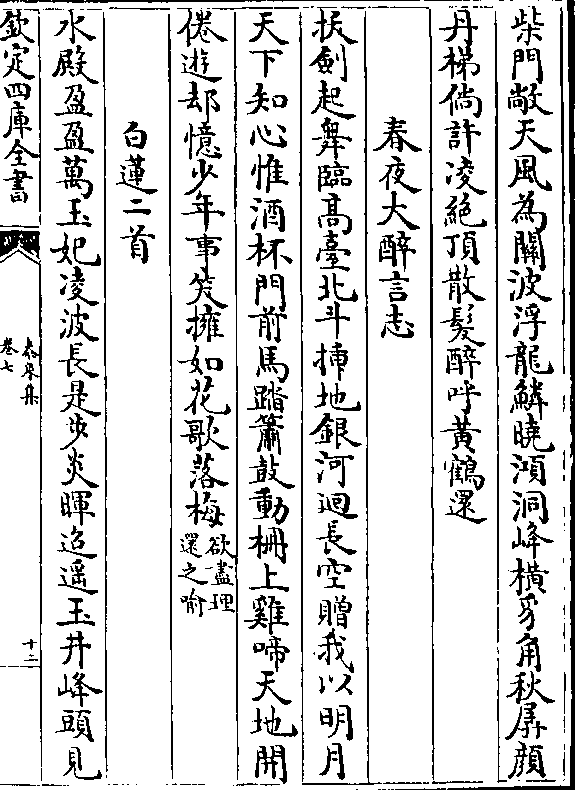 柴門敞天風為關波浮龍鱗曉澒洞峰横豸角秋孱顔
丹梯倘許凌絶頂散髮醉呼黄鶴還
春夜大醉言志
拔劍起舞臨高臺北斗揷地銀河迴長空贈我以明月
天下知心惟酒杯門前馬踏簫鼓動柵上雞啼天地開
倦遊却憶少年事笑擁如花歌落梅欲盡理還之喻
白蓮二首
水殿盈盈萬玉妃凌波長是步炎暉迢遥玉井峰頭見
欽定四庫全書
泰泉集
卷七
十二